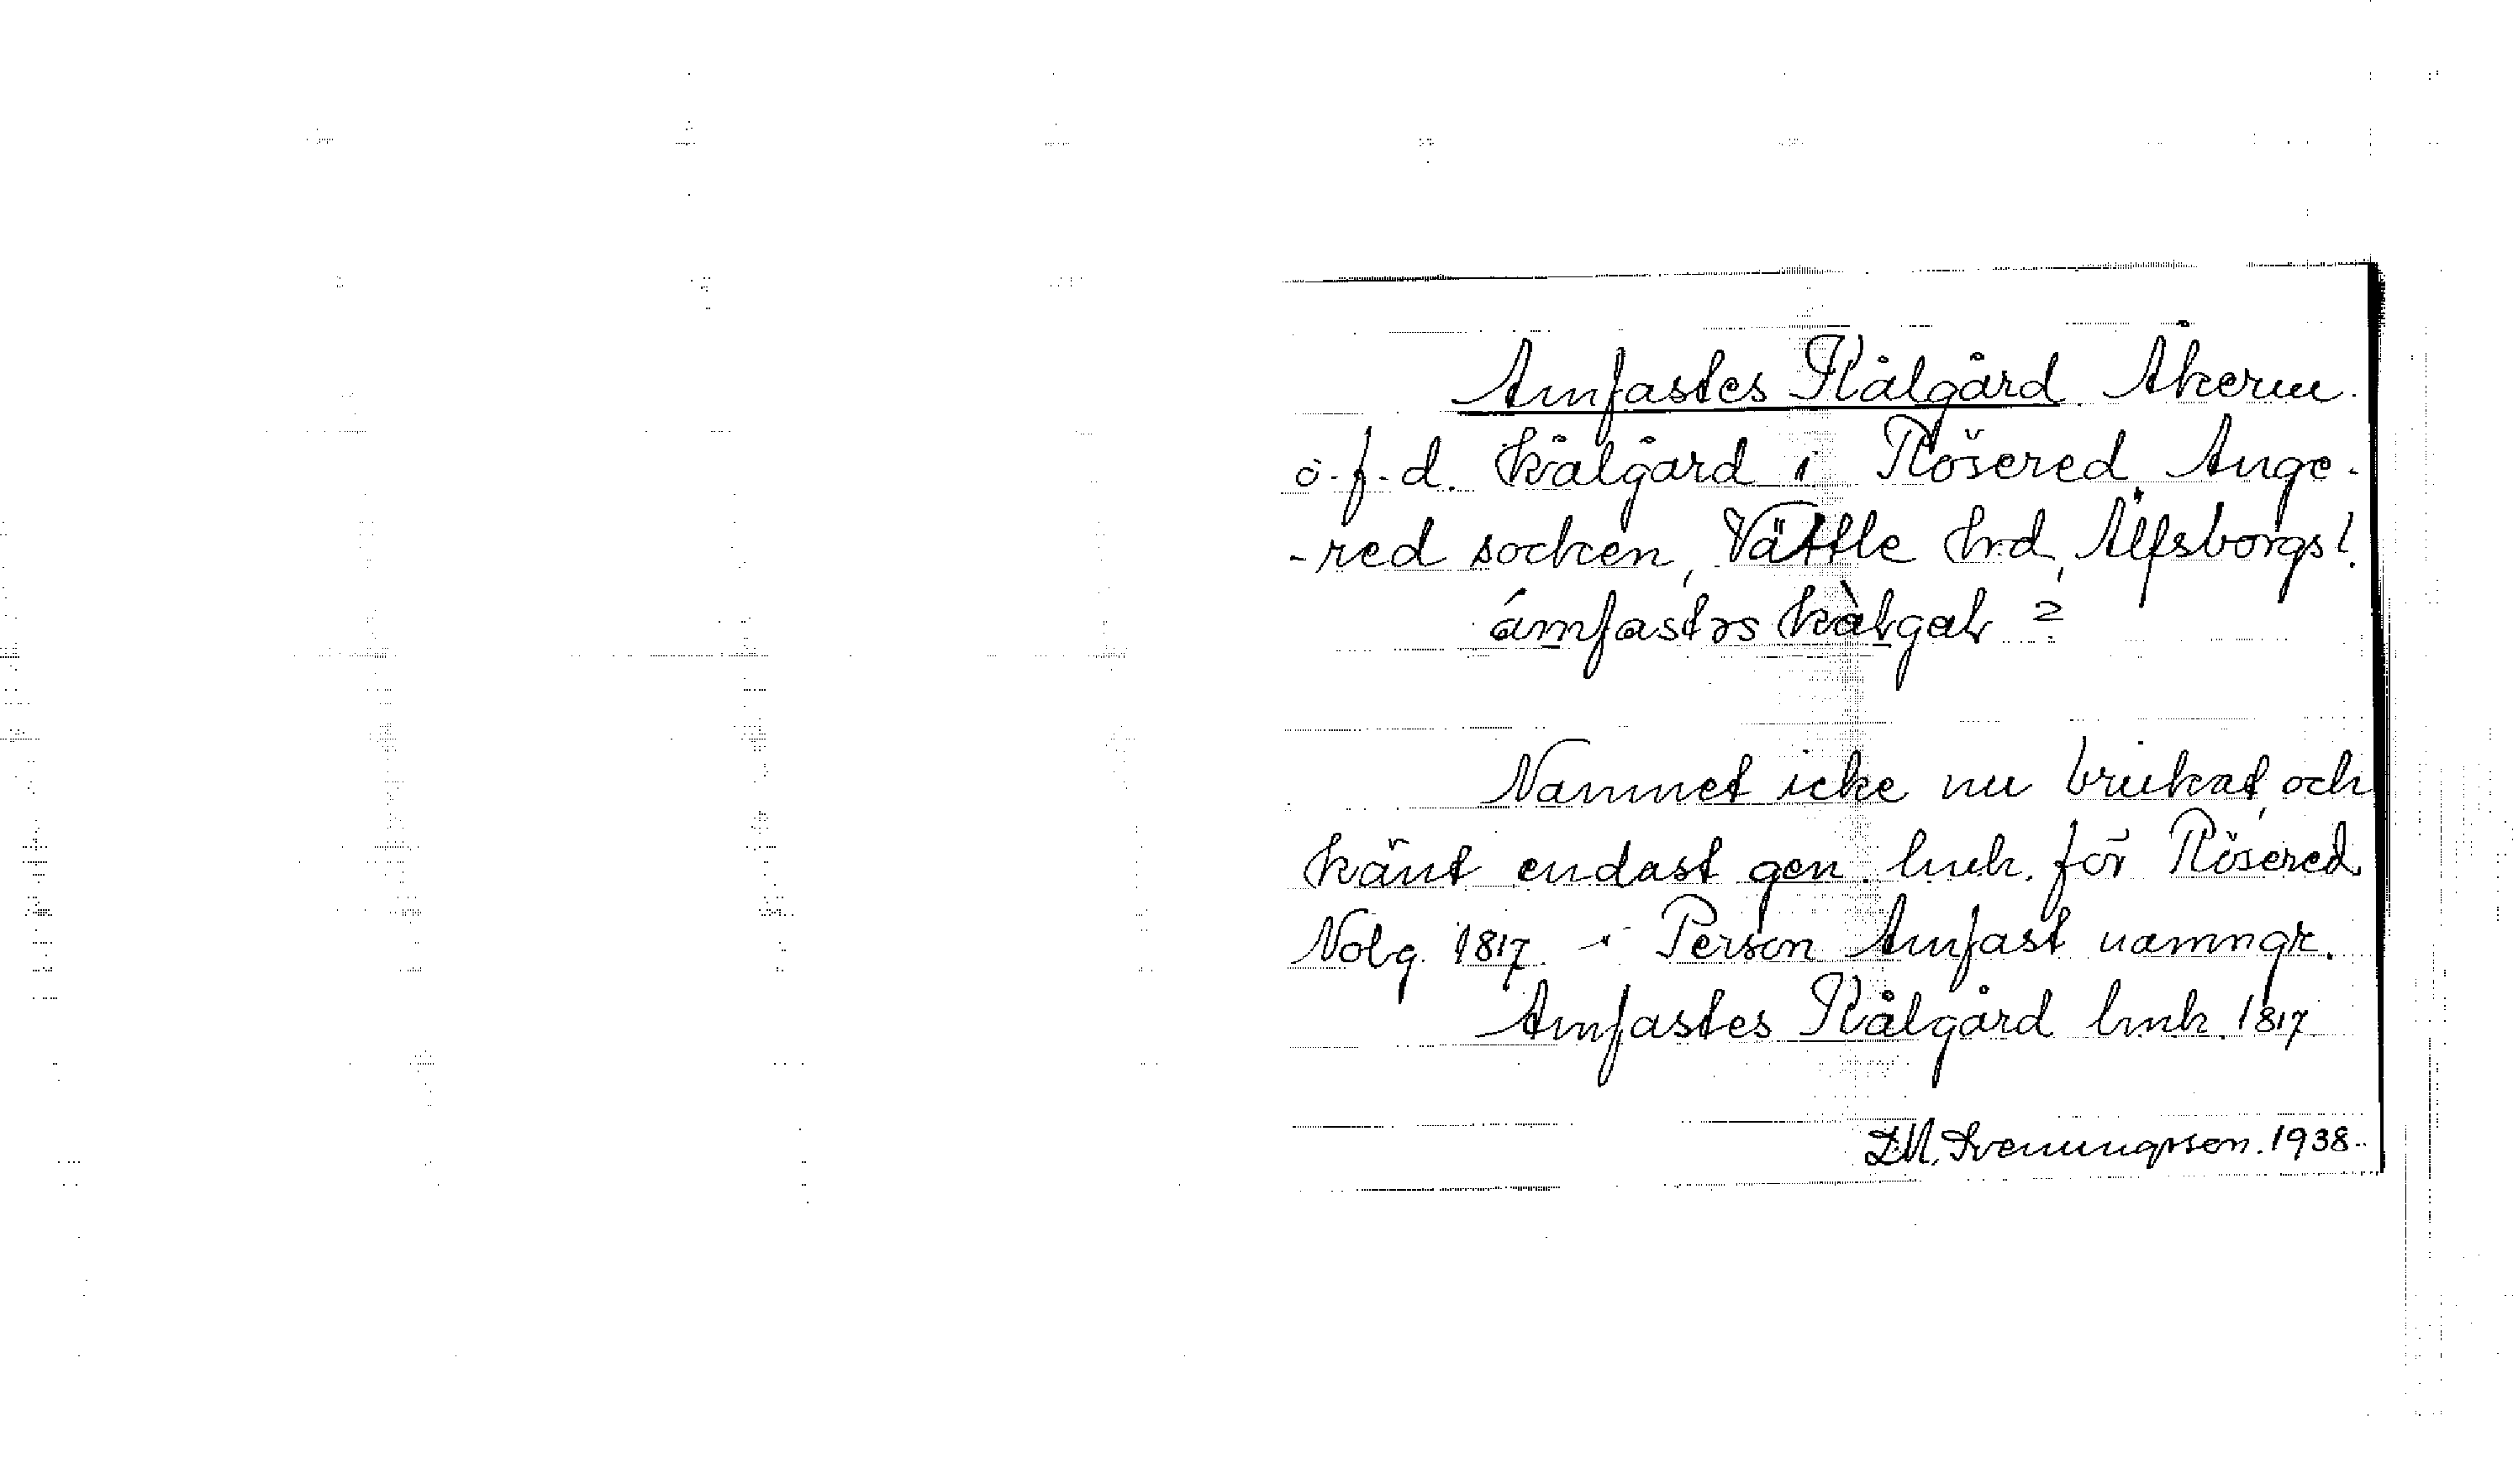 Amfastes Kålgård. Åkerm.
o. f. d. kålgård i Rösered, Ange-
-red socken, Vättle hrd, Älfsborgs l.
ámfastəs kàlgaɫ ?
Namnet icke nu brukat, och
känt endast gen. lmk. för Rösered
Nolg. 1817. - Person Amfast namngr.
Amfastes Kålgård lmk. 1817
D.M. Svenungsson. 1938.